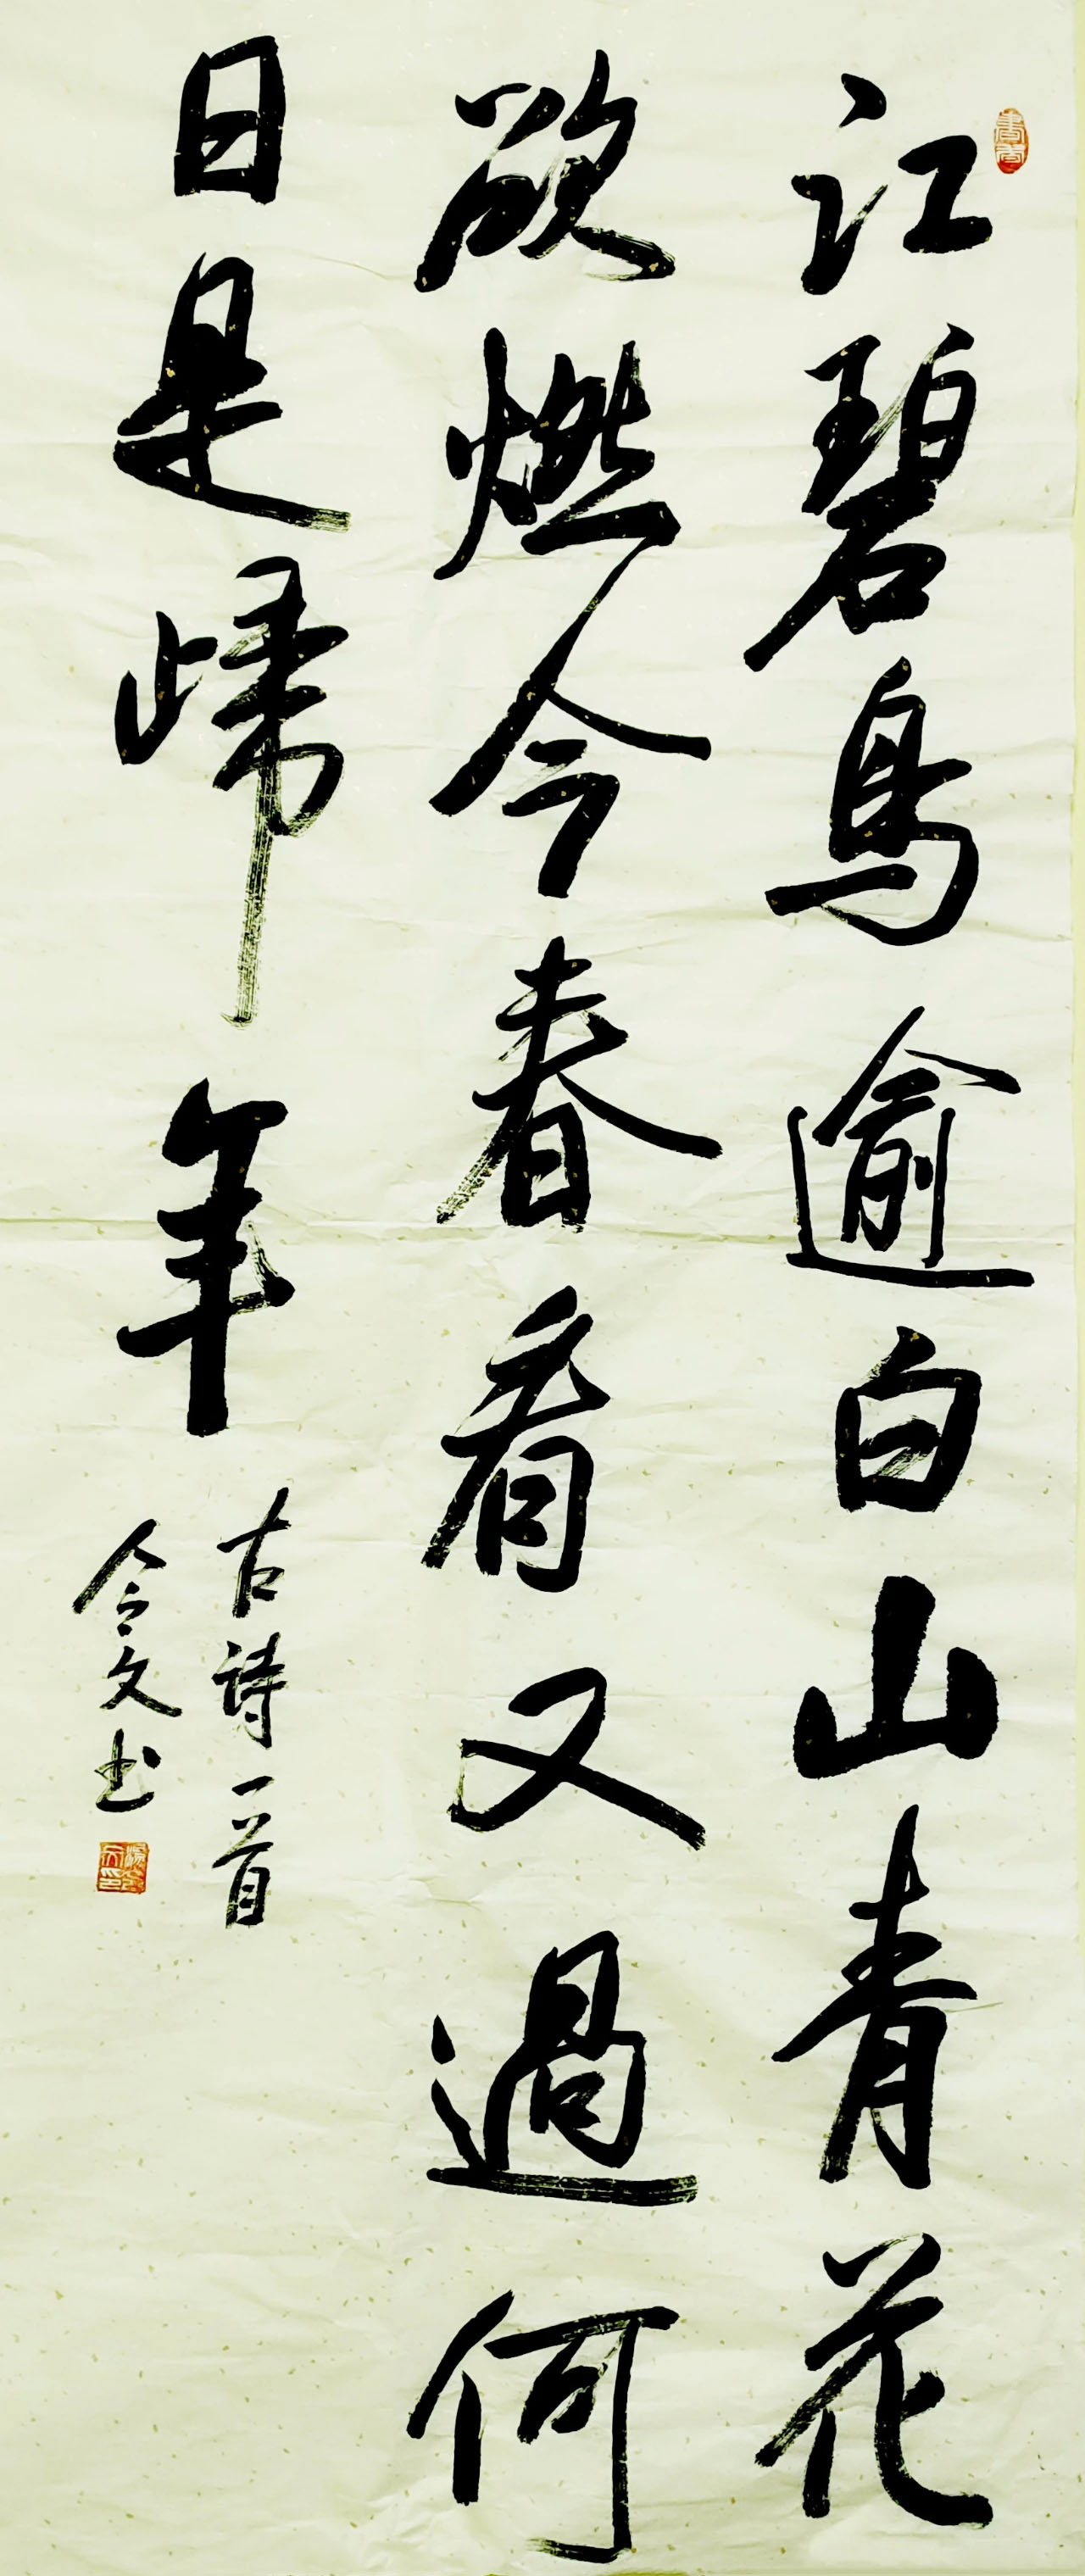 江碧鳥逾白山青花
欲燃今春看又過何
日是歸年
古诗一首
令文书